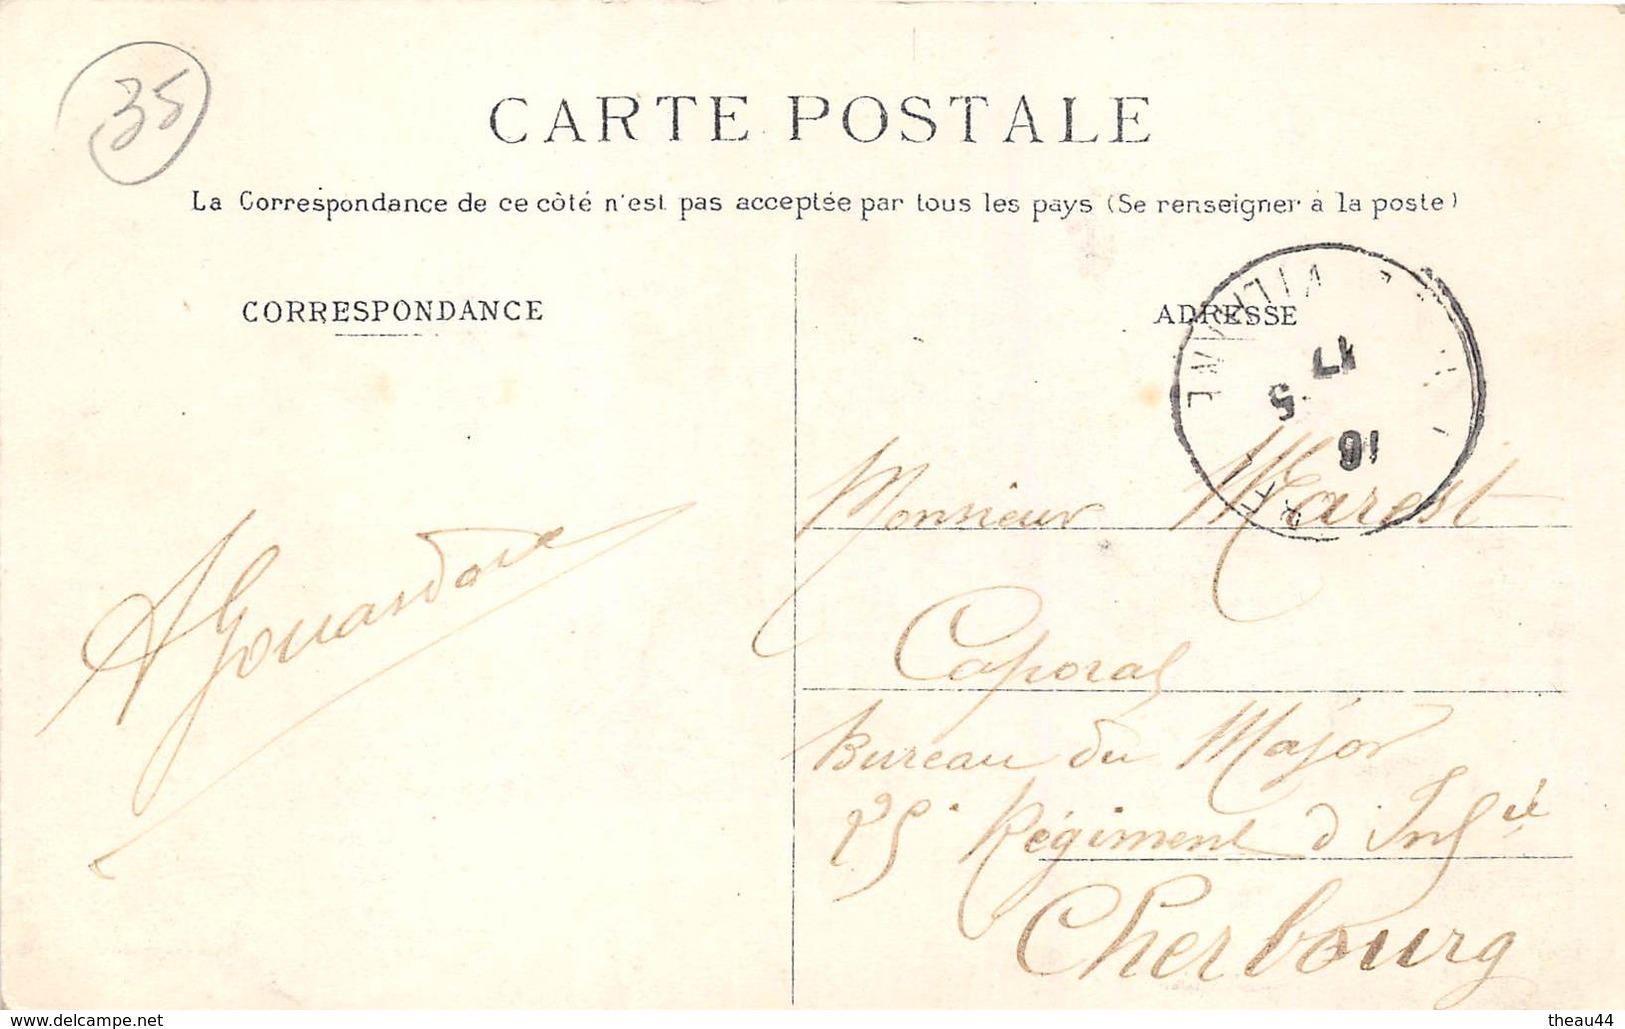 35
CARTE POSTALE
La Correspondance de ce côté n'est pas acceptée par tous les pays (Se renseigner à la poste)
CORRESPONDANCE
ADRESSE
17
5
16
Monsieur Marest
Caporal
Bureau du Major
25e Régiment d'Infie
Cherbourg
https://www.delcampe.net
theau44